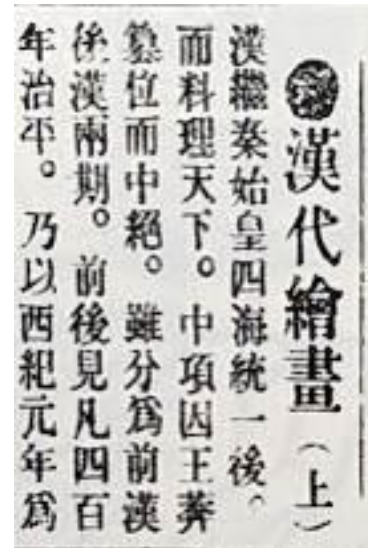 漢代繪畫(上)
漢繼秦始皇四海統一後。
而料理天下。中項因王莽
簒位而中絕。雖分爲前漢
後漢兩期。前後見凡四百
年治平。乃以西紀元年爲